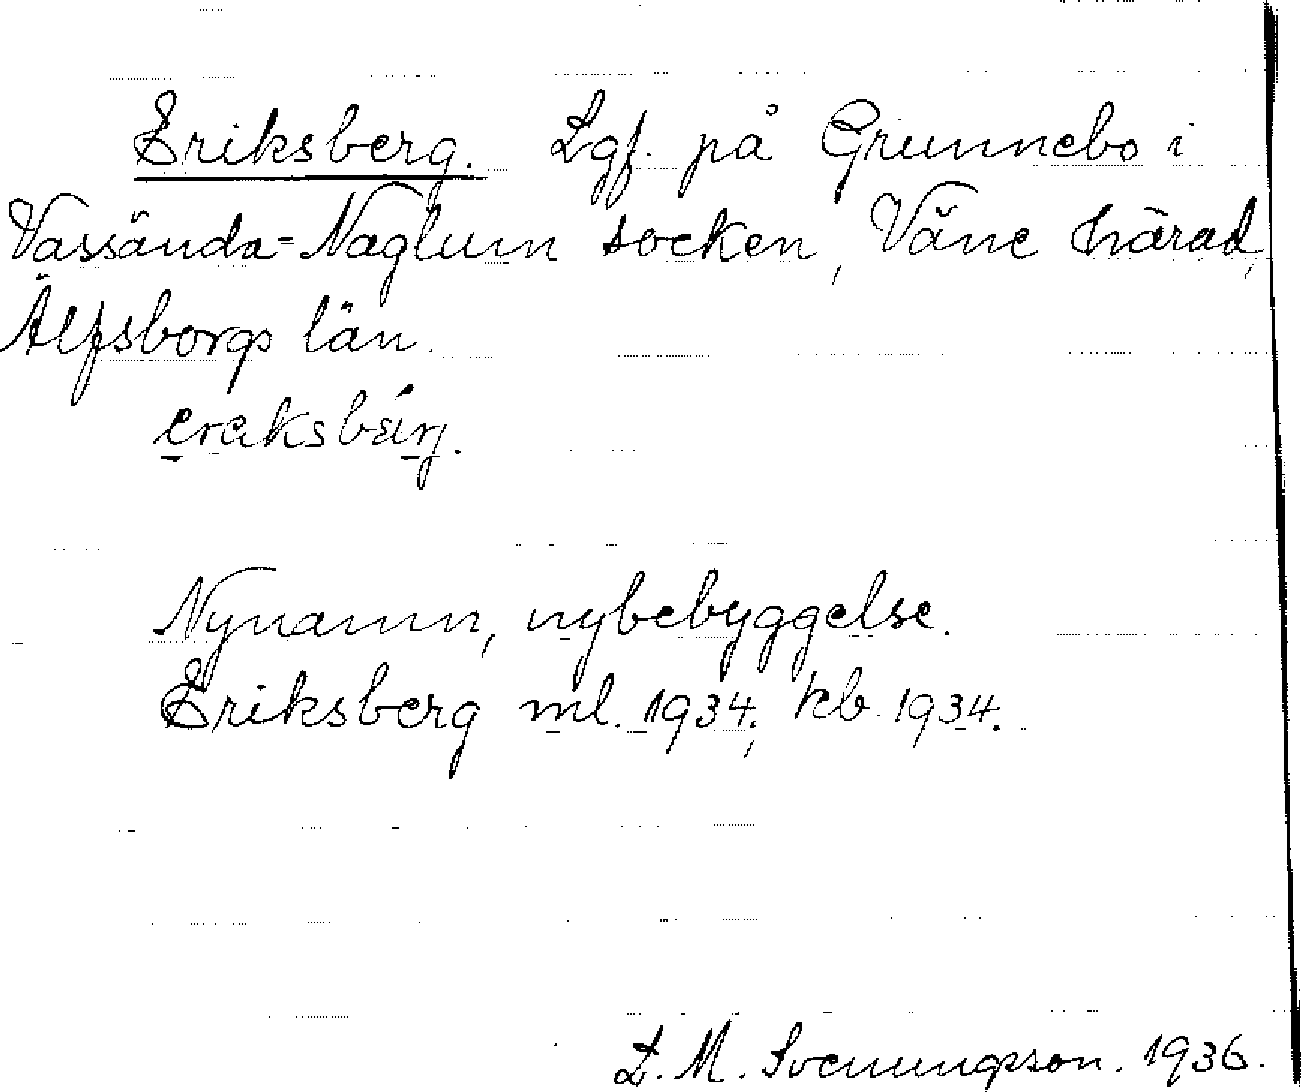 Eriksberg. Lgf. på Grunnebo i
Vassända-Naglum socken, Väne härad,
Älfsborgs län.

Nynamn, nybebyggelse.
Eriksberg ml. 1934; kb. 1934.
L. M. Svenungsson. 1936.